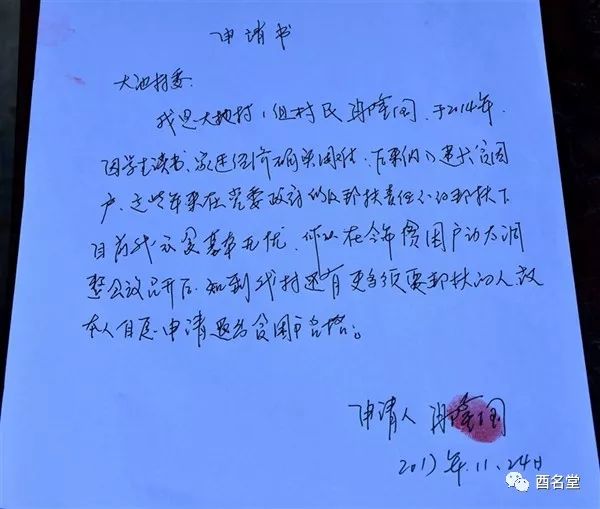 申请书
大池村委:
我是大池村1组村民肖隆国,于2014年,
因学生读书、家庭经济确实困难,后来纳入建卡贫困
户、这些年来在党委政府的及帮扶责任人的帮扶下
目前我家里基本无忧,所以在今年贫困户动大调
整会议召开后,知到我村还有更多须要帮扶的人,故
本人自愿申请退出贫困户名额。
申请人 肖隆国
2017年.11.24日
酉名堂